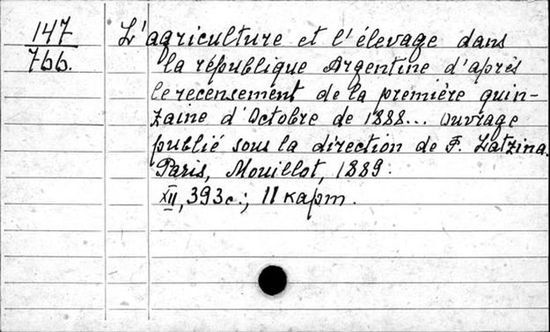 147
766.
L'agriculture et l'élevage dans
la république Argentine d'après
le recensement de la première quin-
zaine d'Octobre de 1888... Ouvrage
publié sous la direction de F. Latzina.
Paris, Mouillot, 1889.
XII, 393 с.; 11 карт.